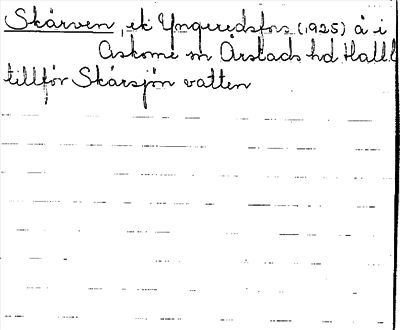 Skärven, ek Yngeredsfors (1925) å i
Askome sn Årstads hd Halll
tillför Skärsjön vatten